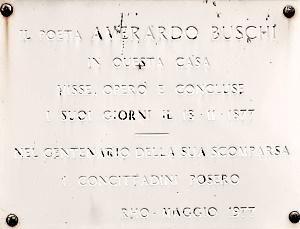 IL POETA AVERARDO BUSCHI
IN QUESTA CASA
VISSE, OPERÒ E CONCLUSE
I SUOI GIORNI IL 13-11-1877
NEL CENTENARIO DELLA SUA SCOMPARSA
I CONCITTADINI POSERO
RHO-MAGGIO 1977